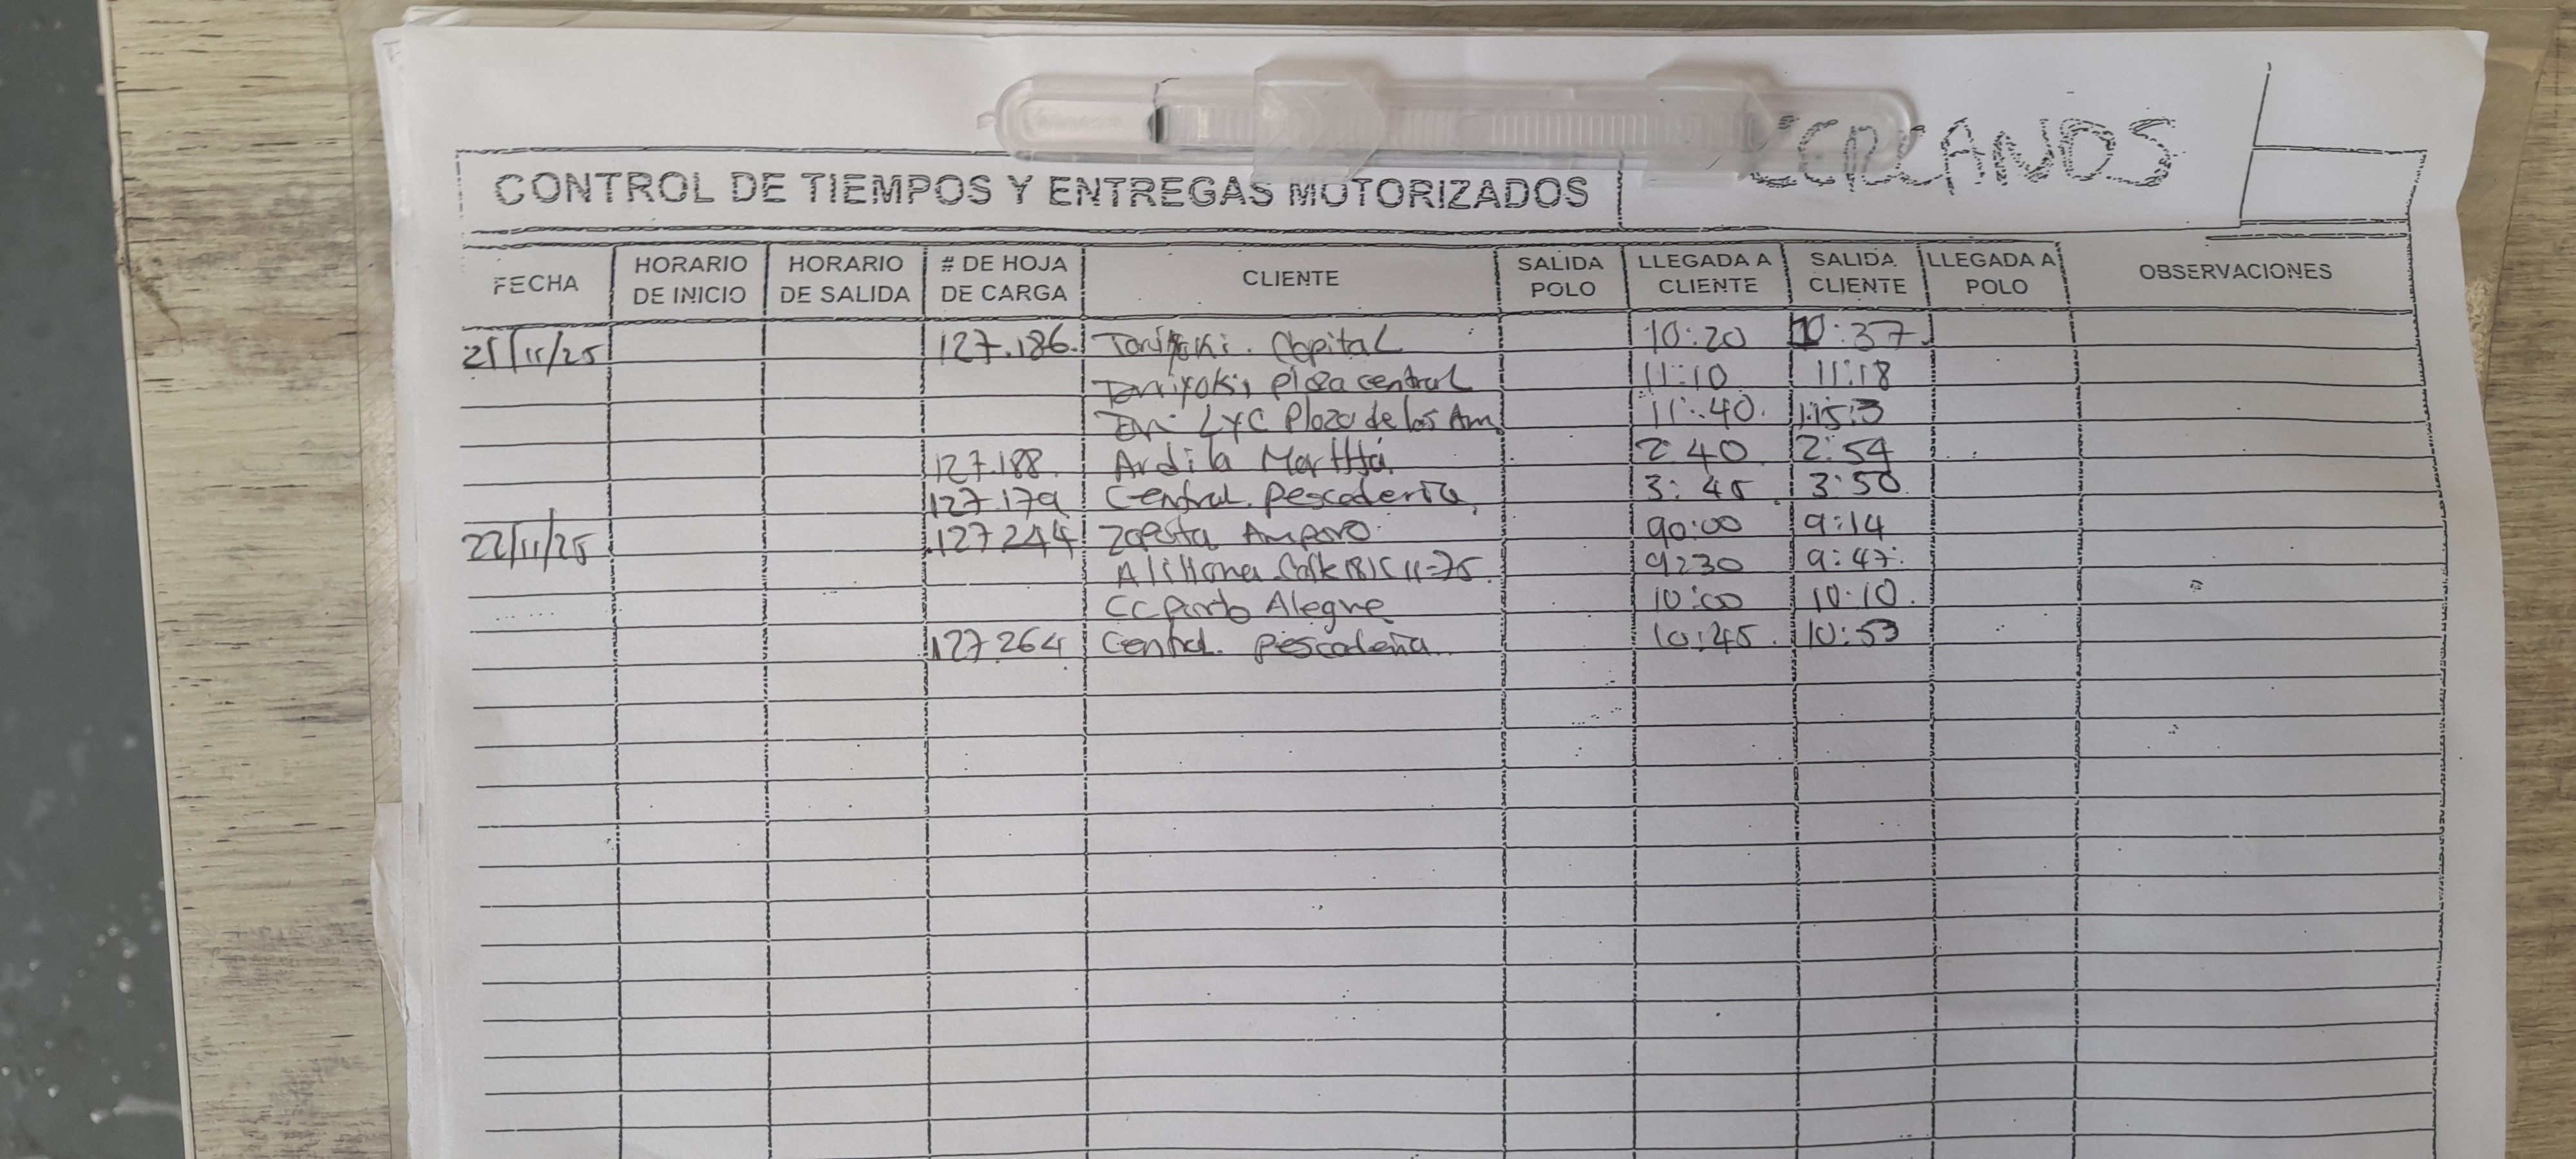 CERCANOS
CONTROL DE TIEMPOS Y ENTREGAS MOTORIZADOS
FECHA HORARIO DE INICIO HORARIO DE SALIDA # DE HOJA DE CARGA CLIENTE SALIDA POLO LLEGADA A CLIENTE SALIDA CLIENTE LLEGADA A POLO OBSERVACIONES
21/11/25 127.186. Capital 10:20 10:37
plaza central 11:10 11:18
LYC Plaza de las Am. 11:40. 1:15:3
127.188. Ardila Martha 2:40 2:54
127.179 Central. Pescaderia 3:45 3:50
22/11/25 127.244 Zapata Amparo 90:00 9:14
11-75 9:30 9:47
CC Porto Alegre 10:00 10:10.
127.264 Central. Pescaderia 10:45. 10:53